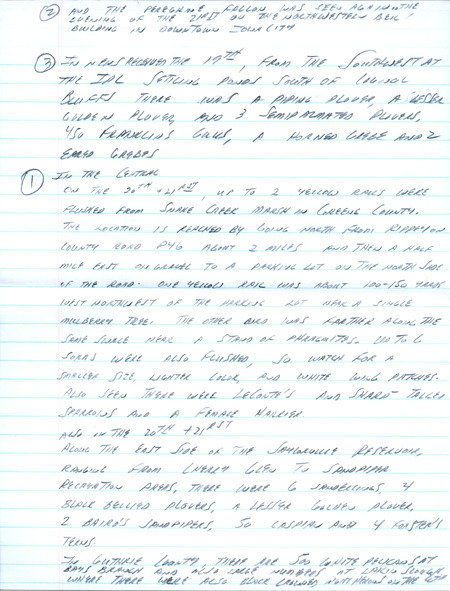 ② AND THE PEREGRINE FALCON WAS SEEN AGAIN ON THE
EVENING OF THE 21ST ON THE NORTHWESTERN BELL
BUILDING IN DOWNTOWN IOWA CITY
③ IN NEWS RECEIVED THE 19TH, FROM THE SOUTHWEST AT
THE IPL SETTLING PONDS SOUTH OF COUNCIL
BLUFFS THERE WAS A PIPING PLOVER, A LESSER
GOLDEN PLOVER, AND 3 SEMIPALMATED PLOVERS,
450 FRANKLINS GULLS, A HORNED GREBE AND 2
EARED GREBES
① IN THE CENTRAL
ON THE 20TH + 21ST, UP TO 2 YELLOW RAILS WERE
FLUSHED FROM SNAKE CREEK MARSH IN GREENE COUNTY.
THE LOCATION IS REACHED BY GOING NORTH FROM RIPPEY ON
COUNTY ROAD P46 ABOUT 2 MILES AND THEN A HALF
MILE EAST ON GRAVEL TO A PARKING LOT ON THE NORTH SIDE
OF THE ROAD. ONE YELLOW RAIL WAS ABOUT 100-150 YARDS
WEST NORTHWEST OF THE PARKING LOT NEAR A SINGLE
MULBERRY TREE. THE OTHER BIRD WAS FARTHER ALONG THE
SAME SWALE NEAR A STAND OF PHRAGMITES. UP TO 6
SORAS WERE ALSO FLUSHED, SO WATCH FOR A
SMALLER SIZE, LIGHTER COLOR, AND WHITE WING PATCHES.
ALSO SEEN THERE WERE LECONTE'S AND SHARP-TAILED
SPARROWS AND A FEMALE HARRIER.
ALSO ON THE 20TH + 21RST
ALONG THE EAST SIDE OF THE SAYLORVILLE RESERVOIR,
RANGING FROM CHERRY GLEN TO SANDPIPER
RECREATION AREAS, THERE WERE 6 SANDERLINGS, 4
BLACK BELLIED PLOVERS, A LESSER GOLDEN PLOVER,
2 BAIRD'S SANDPIPERS, 50 CASPIAN AND 4 FORSTER'S
TERNS.
IN GUTHRIE COUNTY THERE ARE 500 WHITE PELICANS AT
BAYS BRANCH AND ALSO LARGE NUMBERS AT LAKIN SLOUGH
WHERE THERE WERE ALSO BLACK CROWNED NIGHT HERONS ON THE